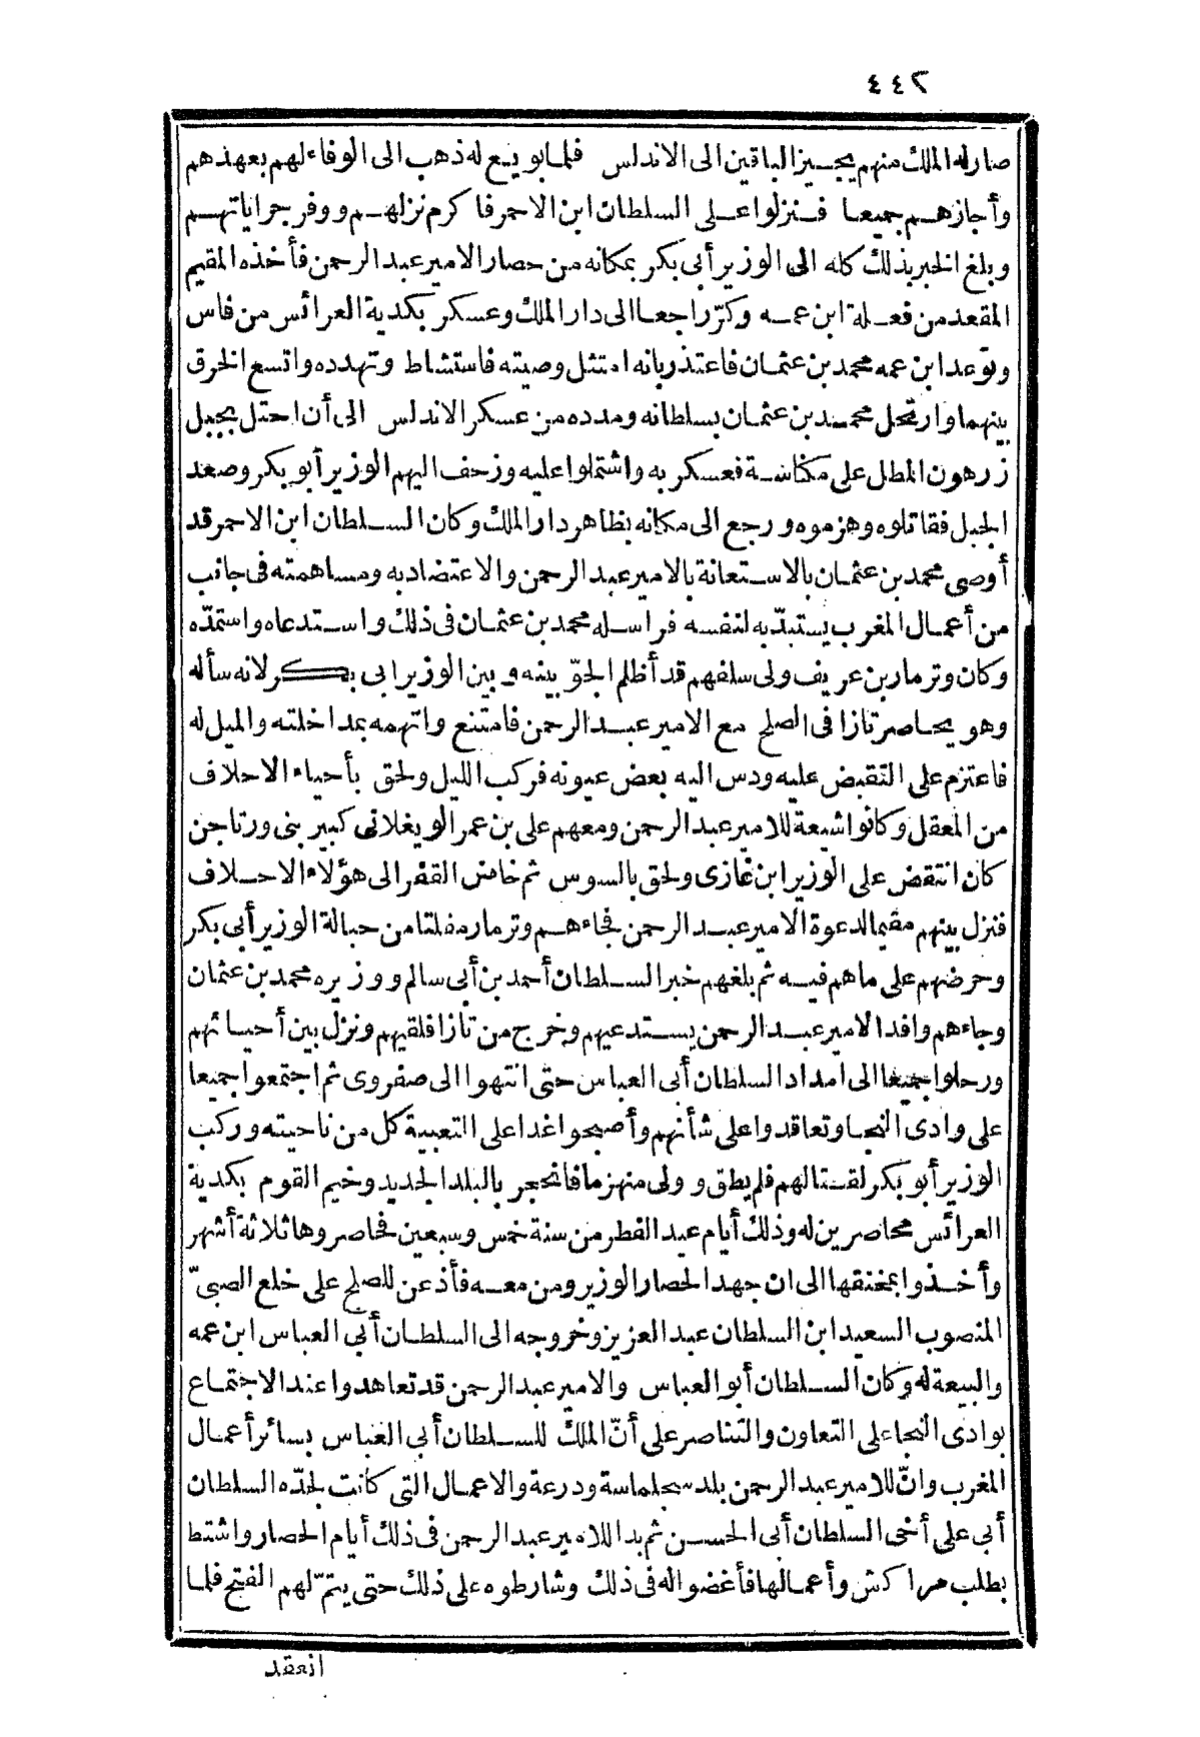 ٤٤٢
صار له الملك منهم يجيز الباقين الى الاندلس فلما بويع له ذهب الى الوفاء لهم بعهدهم
وأجازهم جميعا فنزلوا على السلطان ابن الاحمر فاكرم نزلهم ووفر جراياتهم
وبلغ الخبر بذلك كله الى الوزير أبى بكر بمكانه من حصار الامير عبد الرحمن فأخذه المقيم
المقعد من فعلة ابن عمه وكرّ راجعا الى دار الملك وعسكر بكدية العرائس من فاس
وتوعد ابن عمه محمد بن عثمان فاعتذر بانه امتثل وصيته فاستشاط وتهدده واتسع الخرق
بينهما وارتحل محمد بن عثمان بسلطانه ومدده من عسكر الاندلس الى أن احتل بجبل
زرهون المطل على مكناسة فعسكر به واشتملوا عليه وزحف اليهم الوزير أبو بكر وصعد
الجبل فقاتلوه وهزموه ورجع الى مكانه بظاهر دار الملك وكان السلطان ابن الاحمر قد
أوصى محمد بن عثمان بالاستعانة بالامير عبد الرحمن والاعتضاد به ومساهمته فى جانب
من أعمال المغرب يستبدّ به لنفسه فراسله محمد بن عثمان فى ذلك واستدعاه واستمدّه
وكان وترمار بن عريف ولى سلفهم قد أظلم الجوّ بينه وبين الوزير ابى بكر لانه سأله
وهو يحاصر تازا فى الصلح مع الامير عبد الرحمن فامتنع واتهمه بمداخلته والميل له
فاعتزم على التقبض عليه ودس اليه بعض عيونه فركب الليل ولحق بأحياء الاحلاف
من المعقل وكانوا شيعة للامير عبد الرحمن ومعهم على بن عمر الويغلانى كبير بنى ورتاجن
كان انتقض على الوزير ابن غازى ولحق بالسوس ثم خاض القفر الى هؤلاء الاحلاف
فنزل بينهم مقيما لدعوة الامير عبد الرحمن فجاءهم وترمار مفلتا من حبالة الوزير أبى بكر
وحرضهم على ما هم فيه ثم بلغهم خبر السلطان أحمد بن أبى سالم ووزيره محمد بن عثمان
وجاءهم وافد الامير عبد الرحمن يستدعيهم وخرج من تازا فلقيهم ونزل بين أحيائهم
ورحلوا جميعا الى امداد السلطان أبى العباس حتى انتهوا الى صفروى ثم اجتمعوا جميعا
على وادى النجا وتعاقدوا على شأنهم وأصبحوا غدا على التعبية كل من ناحيته وركب
الوزير أبو بكر لقتالهم فلم يطق وولى منهزما فانحجر بالبلد الجديد وخيم القوم بكدية
العرائس محاصرين له وذلك أيام عيد الفطر من سنة خمس وسبعين فحاصروها ثلاثة أشهر
وأخذوا بمخنقها الى ان جهد الحصار الوزير ومن معه فأذعن للصلح على خلع الصبىّ
المنصوب السعيد ابن السلطان عبد العزيز وخروجه الى السلطان أبى العباس ابن عمه
والبيعة له وكان السلطان أبو العباس والامير عبد الرحمن قد تعاهدوا عند الاجتماع
بوادى النجا على التعاون والتناصر على أنّ الملك للسلطان أبى العباس بسائر أعمال
المغرب وانّ للامير عبد الرحمن بلد سجلماسة ودرعة والاعمال التى كانت لجدّه السلطان
أبى على أخى السلطان أبى الحسن ثم بدا للامير عبد الرحمن فى ذلك أيام الحصار واشتط
بطلب مراكش وأعمالها فأغضوا له فى ذلك وشارطوه على ذلك حتى يتمّ لهم الفتح فلما
انعقد